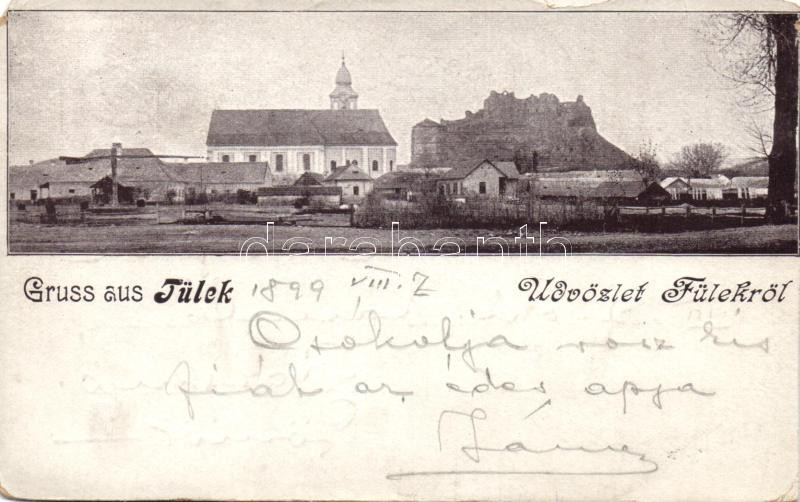 darabanth
Gruss aus Fülek 1899 VIII. 2
Üdvözlet Fülekről
Csokolja rosz kis
fiát az édes apja
János